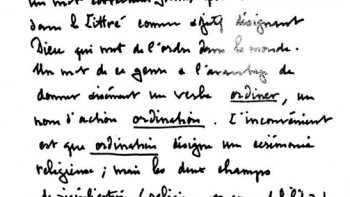 un mot
dans le Littré comme adjectif désignant
Dieu qui met de l'ordre dans le monde.
Un mot de ce genre a l'avantage de
donner aisément un verbe ordiner, un
nom d'action ordination. L'inconvénient
est que ordination désigne une cérémonie
religieuse ; mais les deux champs
(religion